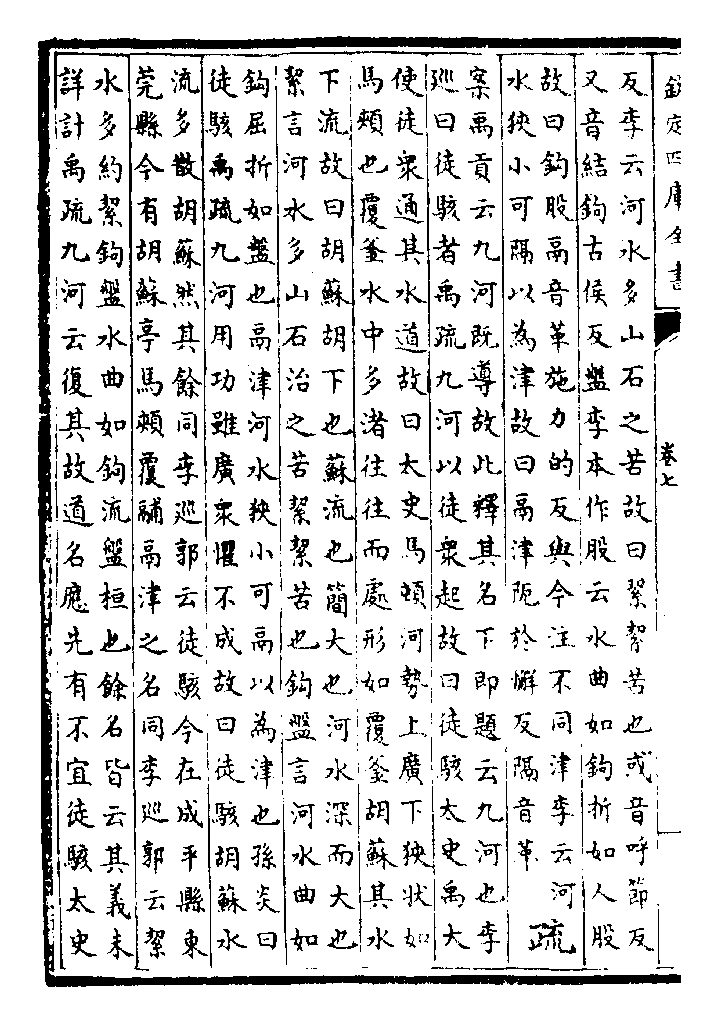 欽定四庫全書
卷七
反李云河水多山石之苦故曰絜絜苦也或音呼節反
又音結鉤古侯反盤李本作股云水曲如鉤折如人股
故曰鉤股鬲音革施力的反與今注不同津李云河
水狹小可隔以為津故曰鬲津阨於懈反隔音革
疏
案禹貢云九河既導故此釋其名下即題云九河也李
巡曰徒駭者禹疏九河以徒衆起故曰徒駭太史禹大
使徒衆通其水道故曰太史馬頰河勢上廣下狹狀如
馬頰也覆釜水中多渚往往而處形如覆釜胡蘇其水
下流故曰胡蘇胡下也蘇流也簡大也河水深而大也
絜言河水多山石治之苦絜絜苦也鉤盤言河水曲如
鉤屈折如盤也鬲津河水狹小可鬲以為津也孫炎曰
徒駭禹疏九河用功雖廣衆懼不成故曰徒駭胡蘇水
流多散胡蘇然其餘同李巡郭云徒駭今在成平縣東
莞縣今有胡蘇亭馬頰覆鬴鬲津之名同李巡郭云絜
水多約絜鉤盤水曲如鉤流盤桓也餘名皆云其義未
詳計禹疏九河云復其故道名應先有不宜徒駭太史